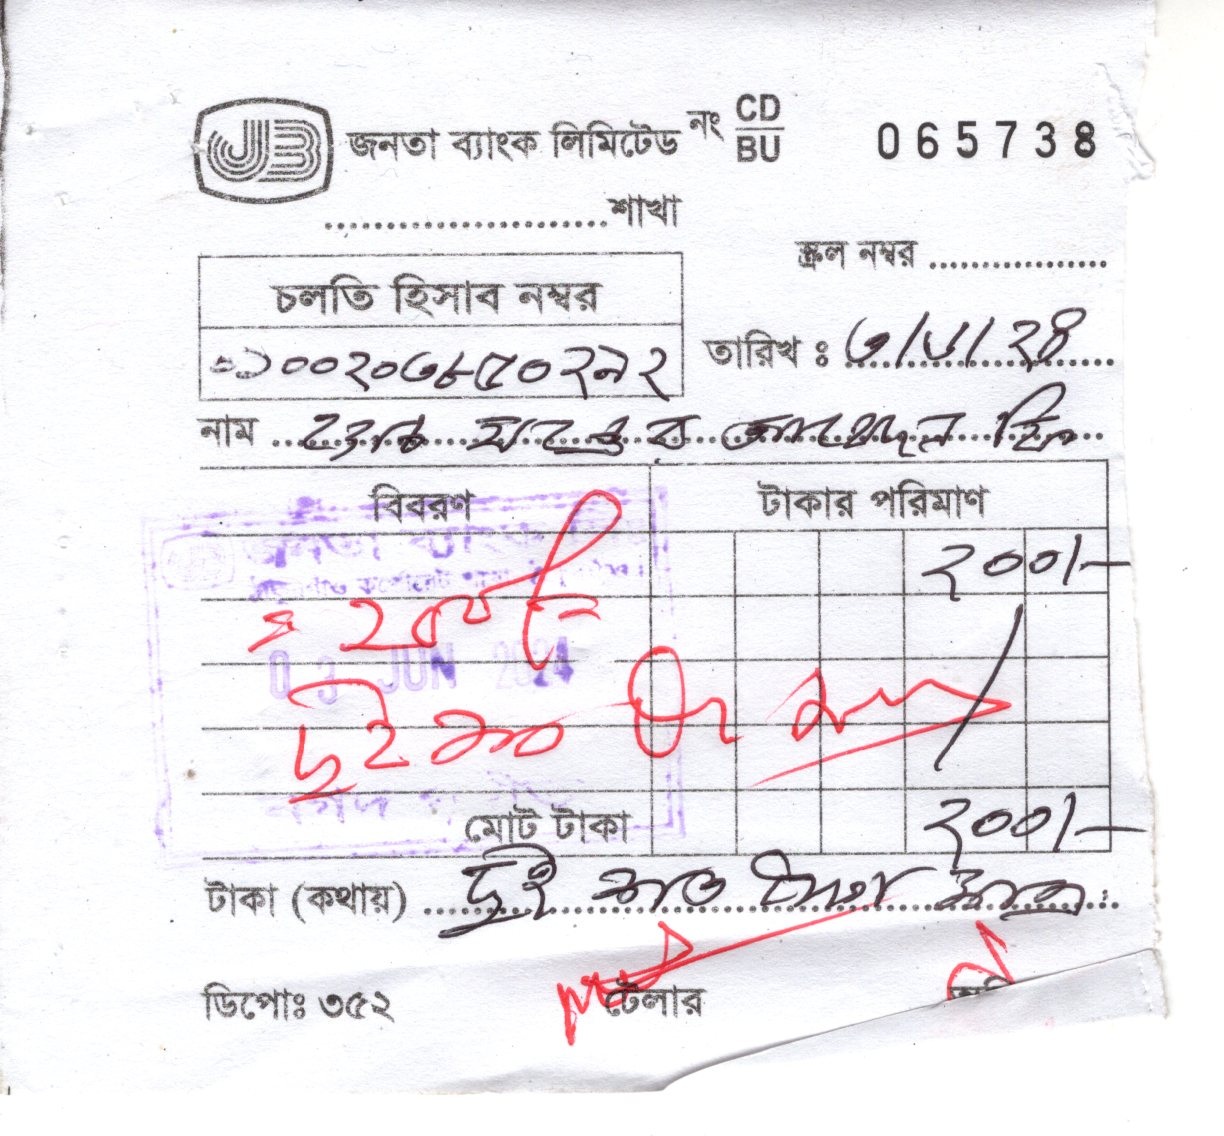 JB জনতা ব্যাংক লিমিটেড নং CD/BU 065738
....................শাখা
স্ক্রল নম্বর ................
চলতি হিসাব নম্বর
তারিখ ঃ ৩/৬/২৪
০১০০২০৩৮৫০২৯২
নাম
বিবরণ টাকার পরিমাণ
জনতা ব্যাংক
২০০/-
03 JUN 2024
দুই শত টাঃ মাত্র
মোট টাকা ২০০/-
টাকা (কথায়) দুই শত টাকা মাত্র
ডিপোঃ ৩৫২ টেলার